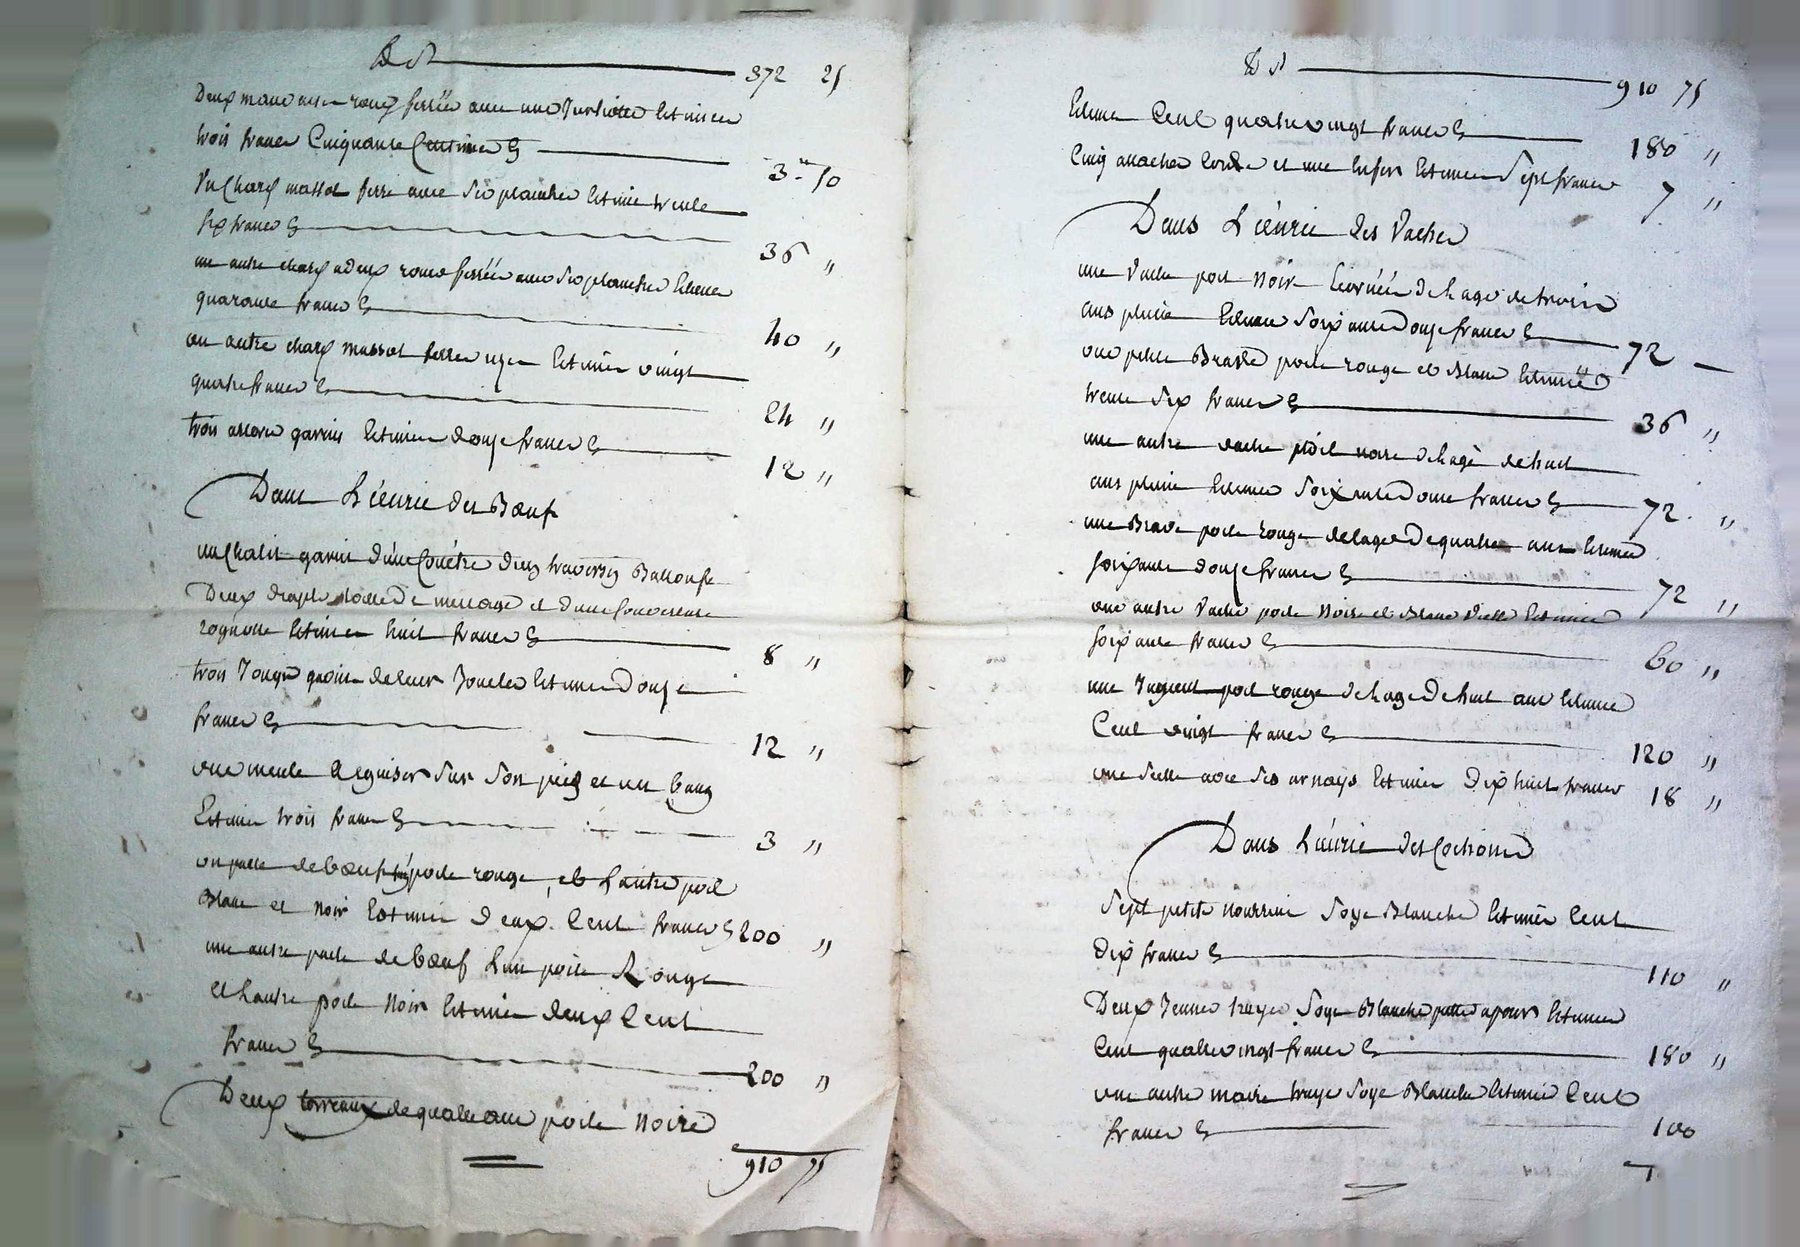 372 25
Deux mauvaises roues ferrées avec une estimée
trois francs Cinquante Centimes
3 " 50
un Charx massot ferré avec ses planches Estimé trente
six francs
36 "
un autre charx a deux roues ferréés avec ses planches Estimé
quarante francs
40 "
un autre charx massot ferré uzé Estimé vingt
quatre francs
24 "
trois garnis Estimés douze francs
12 "
Dans L'écurie des Bœuf
un Chalit garni d'une Couètre deux traversin Ballouffe
Deux draps toille de menage et d'une Couverture
Estimé huit francs
8 "
trois Jougs garnis de leurs Joucles Estimés Douze
francs
12 "
une meule a eguiser sur son pied et un banq
Estimé trois francs
3 "
un paire de bœuf poile rouge, et L'autre poil
Blanc et noir Estimé deux Cent francs 200 "
une autre paire de bœuf L'un poile Rouge
et L'autre poile Noir Estimé deux Cent
francs
200 "
Deux torreaux de quatre ans poile Noire
910 75
910 75
Estimé Cent quatre vingt francs
180 "
Cinq attaches Corde et une En fer Estimées Sept francs
7 "
Dans L'écurie des Vaches
une Vache poil Noir Ecornéé de L'age de trois
ans pleine Estimée Soixante Douze francs
72 —
une petite Brave poile rouge et Blanc Estiméé
trente six francs
36 "
une autre vache poil noire de L'age de huit
ans pleine Estimée Soixante Douze francs
72 "
une Brave poile rouge de L'age de quatre ans Estimée
soixante douze francs
72 "
une autre Vache poile Noire et Blanc vielle Estimée
soixante francs
60 "
une Jument poil rouge de L'age de huit ans Estimée
Cent vingt francs
120 "
une selle avec ses arnays Estimée Dix huit francs 18 "
Dans L'écurie des Cochons
Sept petits nourrins Soye Blanche Estimés Cent
dix francs
110 "
Deux Jeunes truyes Soye Blanche Estimées
Cent quatre vingt francs
180 "
une autre maire truye Soye Blanche Estimée Cent
francs
100